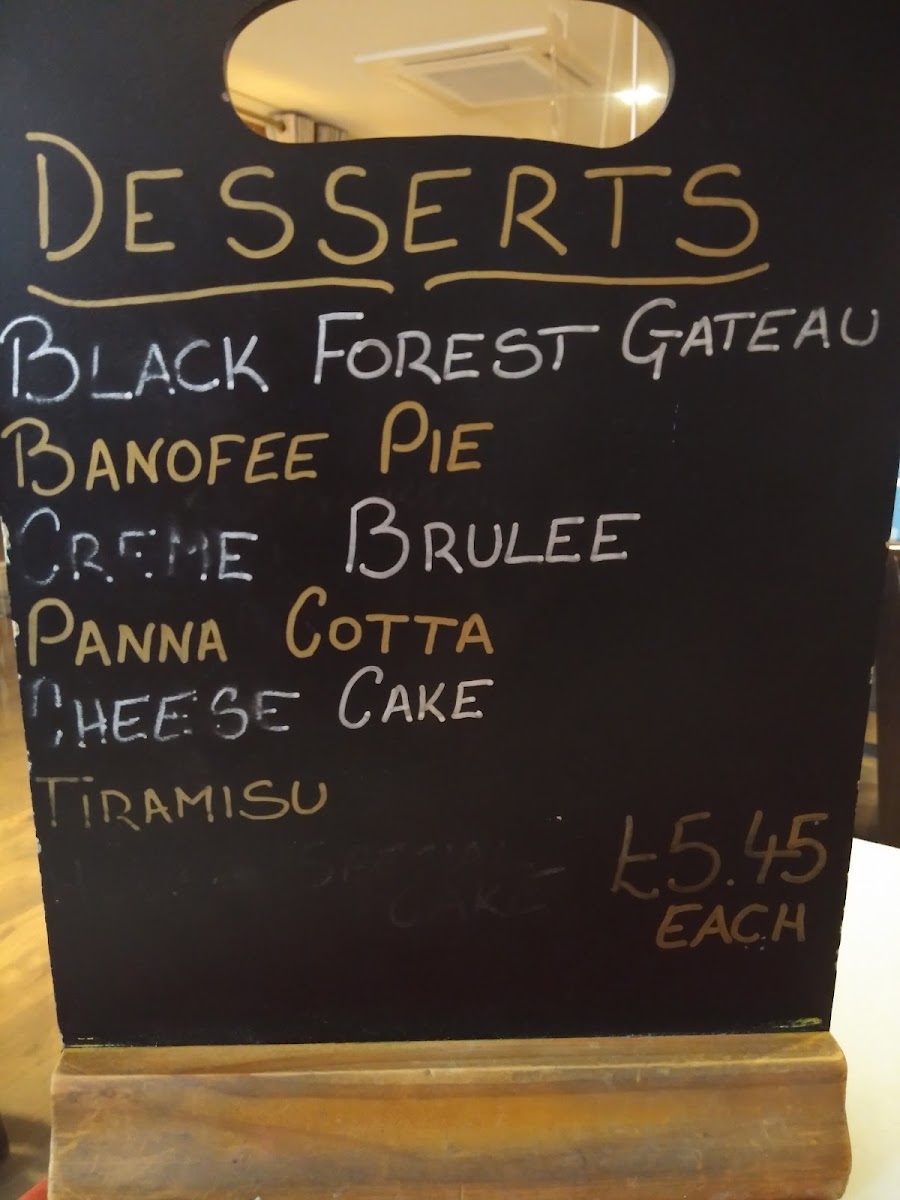 DESSERTS
BLACK FOREST GATEAU
BANOFEE PIE
CREME BRULEE
PANNA COTTA
CHEESE CAKE
TIRAMISU
SPECIAL
CAKE
£5.45
EACH